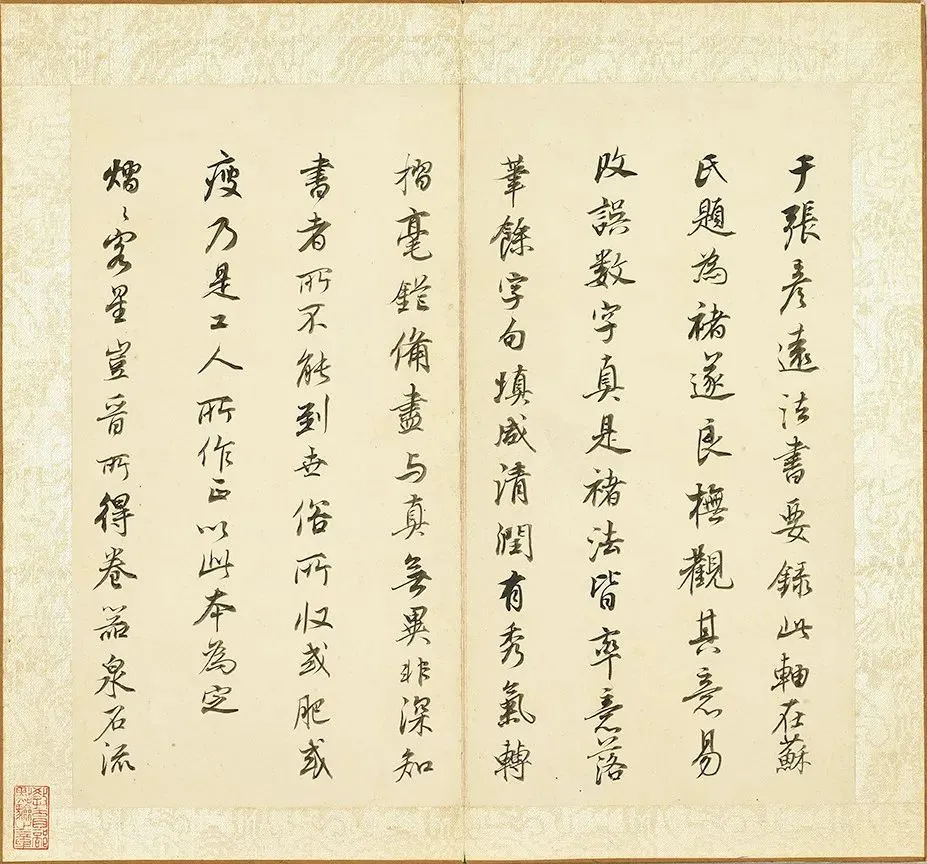 于張彥遠法書要録此軸在蘇
氏題為褚遂良橅觀其意易
改誤数字真是褚法皆率意落
筆餘字勾填咸清潤有秀氣轉
摺毫鋩備盡与真無異非深知
書者所不能到世俗所收或肥或
瘦乃是工人所作正以此本為定
熠〻客星豈晉所得卷器泉石流